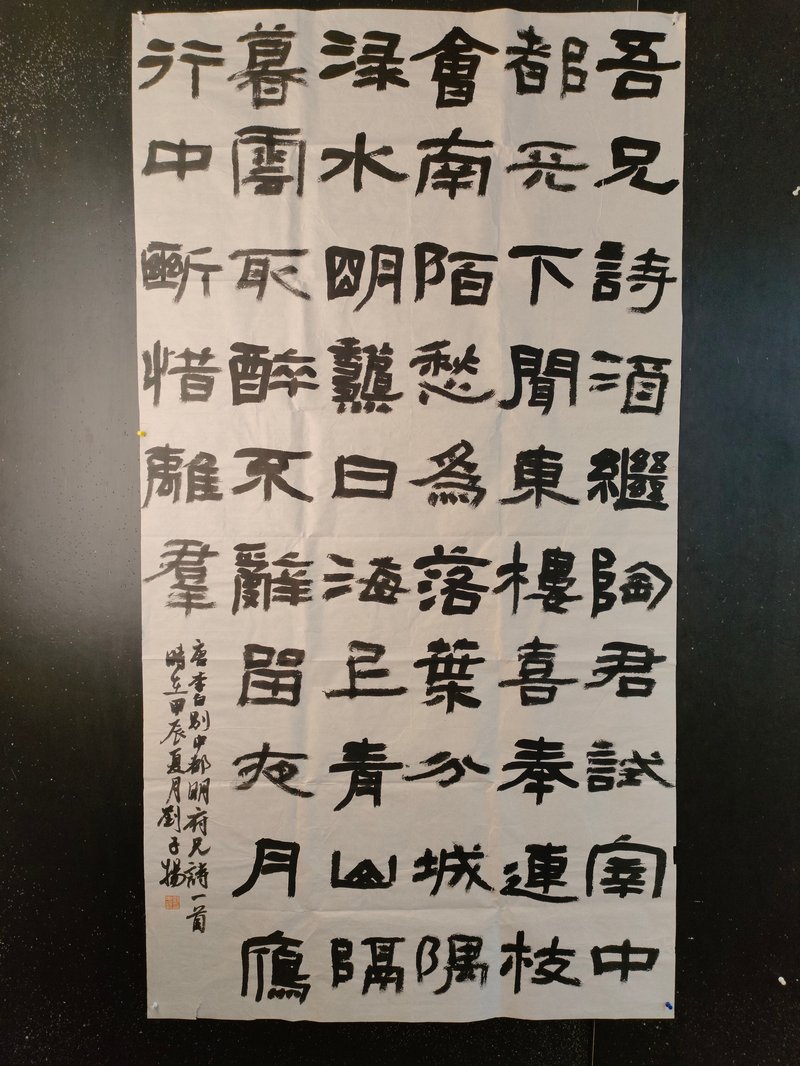 吾兄詩酒繼陶君試宰中
都天下聞東樓喜奉連枝
會南陌愁爲落葉分城隅
淥水明龝日海上青山隔
暮雲取醉不辭留夜月鴈
行中斷惜離羣
唐李白別中都明府兄詩一首
時在甲辰夏月劉子揚